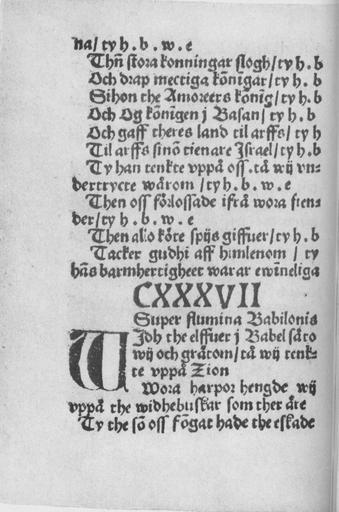 na/ ty h . b . w . e
Thn̄ stora konningar slogh/ ty h . b
Och drap mectiga kōnīgar/ ty h . b
Sihon the Amoreers kōnīg/ ty h . b
Och Og kōnīgen j Basan/ ty h . b
Och gaff theres land til arffs/ ty h
Til arffs sinō tienare Israel/ ty h . b
Ty han tenkte vppå oss . tå wij vn⸗
dertrycte wårom / ty h . b . w . e
Then oss förlossade ifrå wora fien⸗
der/ ty h . b . w . e
Then allo köte spijs giffuer/ ty h . b
Tacker gudhi aff himlenom / ty
hās barmhertigheet warar ewīneliga
CXXXVII
Super flumina Babilonis
WJdh the elffuer j Babel såto
wij och gråtom/ tå wij tenk⸗
te vppå Zion
Wora harpor hengde wij
vppå the widhebuskar som ther äre
Ty the sō oss fōgat hade the eskade